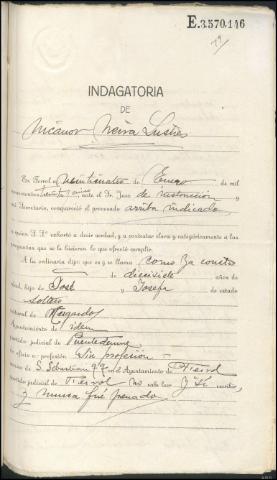 E.3.570.146
79
INDAGATORIA
DE
Nicanor Neira Lustres
En Ferrol a veinticuatro de Enero de mil
novecientos treinta y cinco ante el Sr. Juez de instrucción y
mi Secretario, compareció el procesado arriba indicado
a quien S. S.ª exhortó a decir verdad, y a contestar clara y categóricamente a las
preguntas que se le hicieren lo que ofreció cumplir.
A la ordinaria dijo: que es y se llama como ya consta
de diecisiete años de
edad, hijo de José y Josefa de estado
soltero
natural de Mugardos
Ayuntamiento de idem
partido judicial de Puentedeume
de oficio o profesión Sin profesion
vecino de S. Sebastian 97 en el Ayuntamiento de Ferrol
partido judicial de Ferrol que sabe leer y
y nunca fué penado